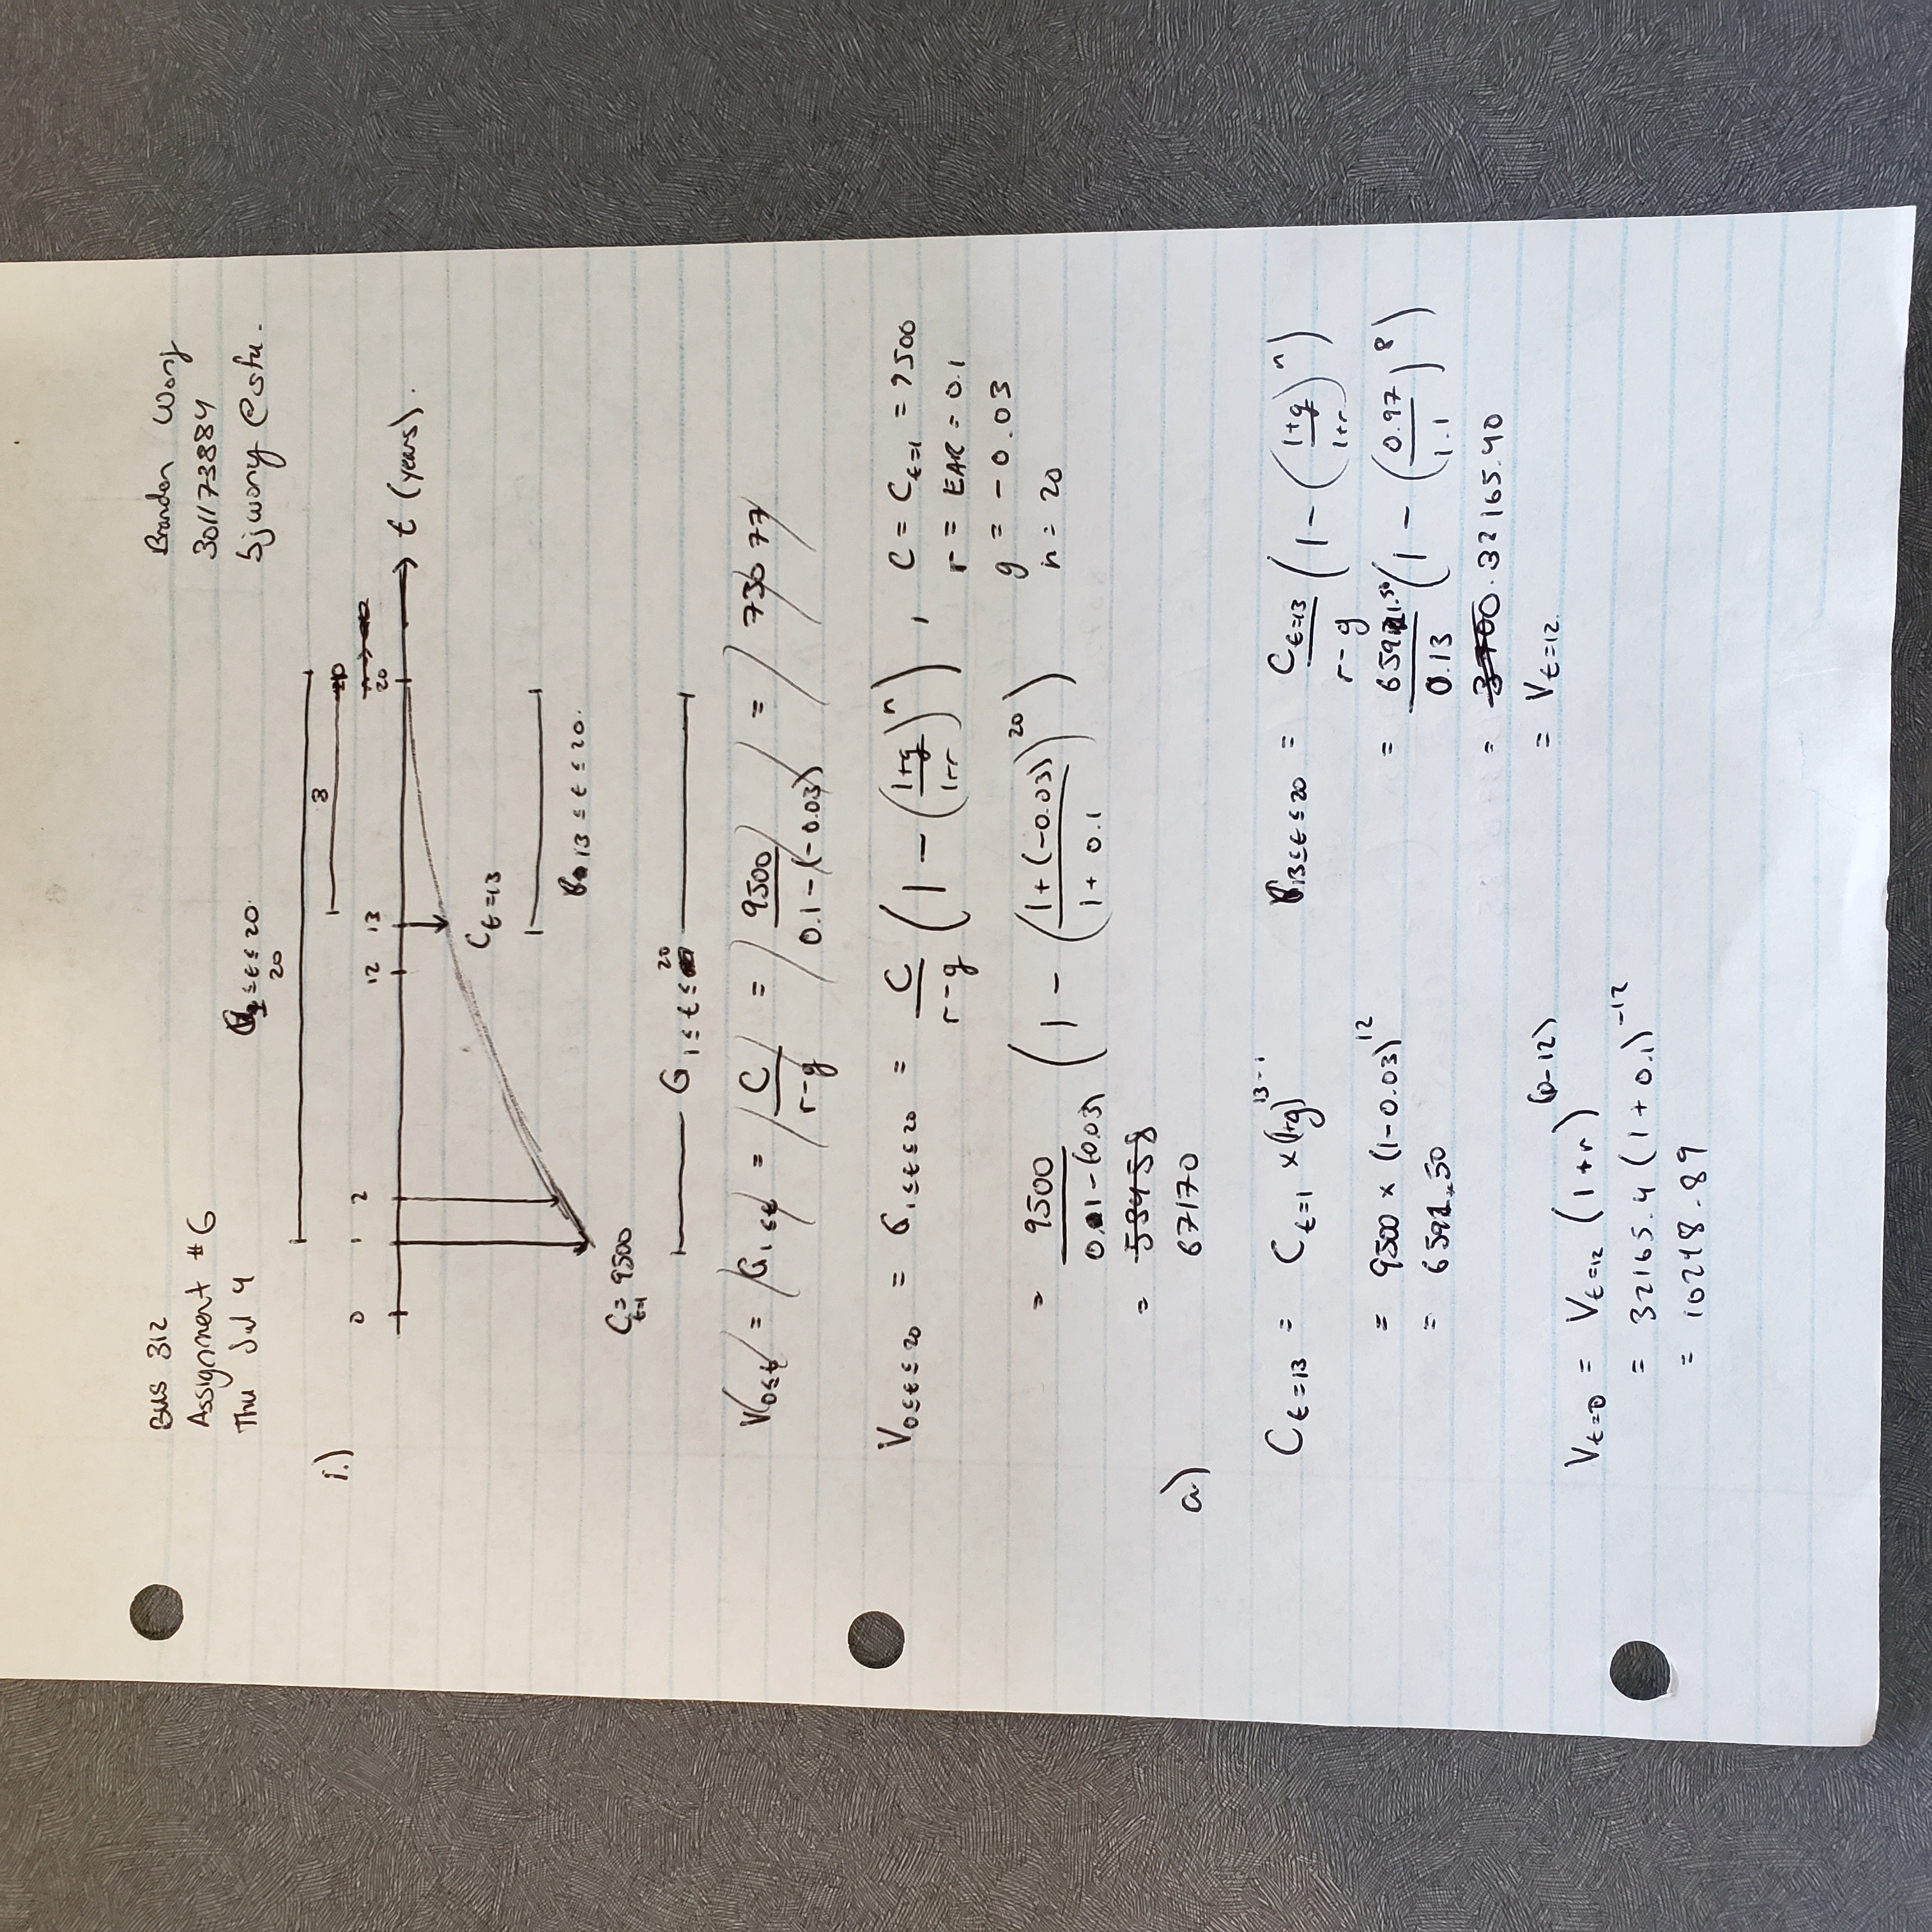 BUS 312
Assignment #6
Thu Jul 4
Brandon Wong
301173884
bjwong @sfu.
G 1 ≤ t ≤ 20.
20
8
1.)
0 1 2 12 13 20
t (years).
C t=13
13 ≤ t ≤ 20.
C t=1 = 9500
G 1 ≤ t ≤ 20
V 0≤t = G 1≤t = C / (r-g) = 9500 / (0.1-(-0.03)) = 73077
V 0≤t≤20 = G 1≤t≤20 = C / (r-g) (1 - ((1+g) / (1+r))^n), C = C t=1 = 9500
r = EAR = 0.1
g = -0.03
n = 20
= 9500 / (0.1-(0.03)) (1 - ((1+(-0.03)) / (1+0.1))^20)
= 53458
a.) 67170
C t=13 = C t=1 × (1+g)^13-1
= 9500 × (1-0.03)^12
= 6591.50
G 13≤t≤20 = C t=13 / (r-g) (1 - ((1+g) / (1+r))^n)
= 6591.50 / 0.13 (1 - (0.97 / 1.1)^8)
= 3700. 32165.40
= V t=12.
V t=0 = V t=12 (1+r)^(0-12)
= 32165.4 (1+0.1)^-12
= 10248.89